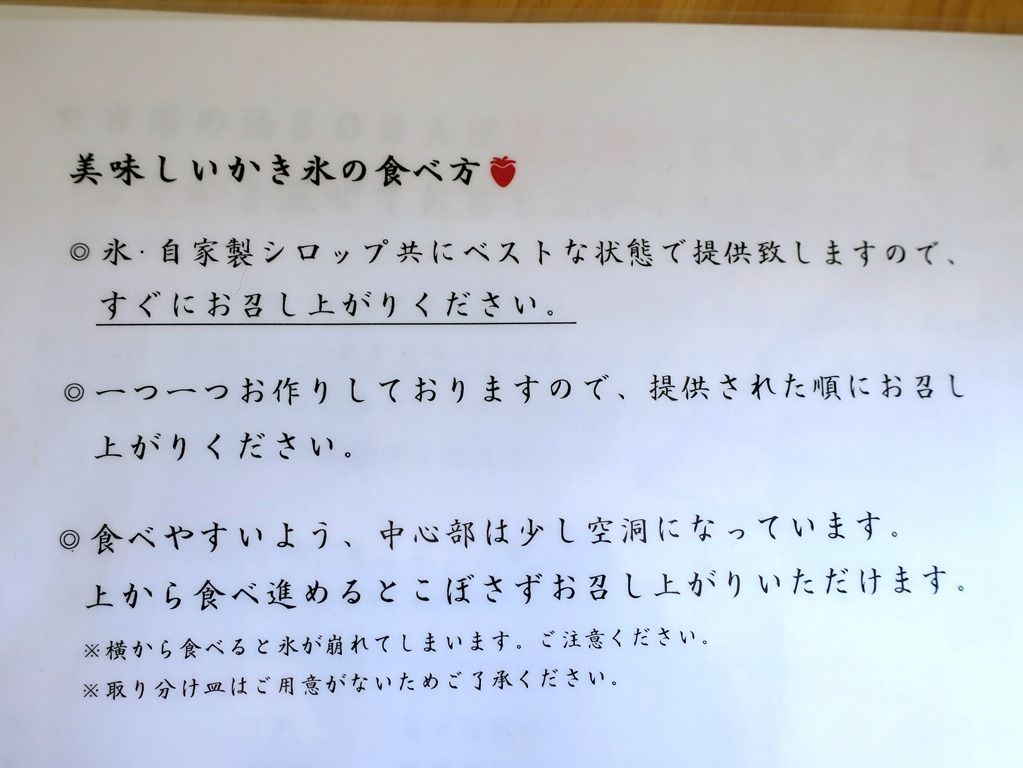 美味しいかき氷の食べ方
◎氷・自家製シロップ共にベストな状態で提供致しますので、
すぐにお召し上がりください。
◎一つ一つお作りしておりますので、提供された順にお召し
上がりください。
◎食べやすいよう、中心部は少し空洞になっています。
上から食べ進めるとこぼさずお召し上がりいただけます。
※横から食べると氷が崩れてしまいます。ご注意ください。
※取り分け皿はご用意がないためご了承ください。